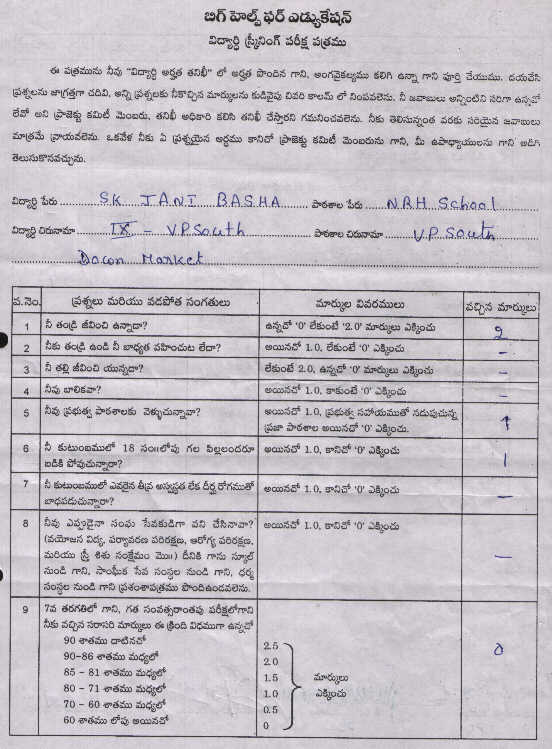 బిగ్ హెల్ప్ ఫర్ ఎడ్యుకేషన్
విద్యార్ధి స్క్రీనింగ్ పరీక్ష పత్రము
ఈ పత్రమును నీవు "విద్యార్ధి అర్హత తనిఖీ" లో అర్హత పొందిన గాని, అంగవైకల్యము కలిగి ఉన్నా గాని పూర్తి చేయుము. దయచేసి
ప్రశ్నలను జాగ్రత్తగా చదివి, అన్ని ప్రశ్నలకు నీకొచ్చిన మార్కులను కుడివైపు చివరి కాలమ్ లో నింపవలెను. నీ జవాబులు అన్నింటిని సరిగా ఉన్నవో
లేవో అని ప్రాజెక్టు కమిటీ మెంబరు, తనిఖీ అధికారి కలిసి తనిఖీ చేస్తారని గమనించవలెను. నీకు తెలిసున్నంత వరకు సరియైన జవాబులు
మాత్రమే వ్రాయవలెను. ఒకవేళ నీకు ఏ ప్రశ్నయైన అర్ధము కానిచో ప్రాజెక్టు కమిటీ మెంబరును గాని, మీ ఉపాధ్యాయులను గాని అడిగి
తెలుసుకొనవచ్చును.
విద్యార్ధి పేరు SK JANI BASHA పాఠశాల పేరు N.R.H School
విద్యార్ధి చిరునామా IX - V.P South పాఠశాల చిరునామా V.P. South
Market
వ.నెం. ప్రశ్నలు మరియు వడపోత సంగతులు మార్కుల వివరములు వచ్చిన మార్కులు
1 నీ తండ్రి జీవించి ఉన్నాడా? ఉన్నచో '0' లేకుంటే '2.0' మార్కులు ఎక్కించు 2
2 నీకు తండ్రి ఉండి నీ బాధ్యత వహించుట లేదా? అయినచో 1.0, లేకుంటే '0' ఎక్కించు –
3 నీ తల్లి జీవించి యున్నదా? లేకుంటే 2.0, ఉన్నచో '0' మార్కులు ఎక్కించు –
4 నీవు బాలికవా? అయినచో 1.0, కాకుంటే '0' ఎక్కించు –
5 నీవు ప్రభుత్వ పాఠశాలకు వెళ్ళుచున్నావా? అయినచో 1.0, ప్రభుత్వ సహాయముతో నడుపుచున్న 1
ప్రజా పాఠశాల అయినచో '0' ఎక్కించు.
6 నీ కుటుంబములో 18 సం॥లోపు గల పిల్లలందరూ అయినచో 1.0, కానిచో '0' ఎక్కించు 1
బడికి పోవుచున్నారా?
7 నీ కుటుంబములో ఎవరైన తీవ్ర అస్వస్థత లేక దీర్ఘ రోగముతో అయినచో 1.0, కానిచో '0' ఎక్కించు –
బాధపడుచున్నారా?
8 నీవు ఎప్పుడైనా సంఘ సేవకుడిగా పని చేసినావా? అయినచో 1.0, కానిచో '0' ఎక్కించు –
(వయోజన విద్య, పర్యావరణ పరిరక్షణ, ఆరోగ్య పరిరక్షణ,
మరియు స్త్రీ శిశు సంక్షేమం మొ॥) దీనికి గాను స్కూల్
నుండి గాని, సాంఘీక సేవ సంస్థల నుండి గాని, ధర్మ
సంస్థల నుండి గాని ప్రశంశాపత్రము పొందిఉండవలెను.
9 7వ తరగతిలో గాని, గత సంవత్సరాంతపు పరీక్షలోగాని 0
నీకు వచ్చిన సరాసరి మార్కులు ఈ క్రింది విధముగా ఉన్నచో
90 శాతము దాటినచో 2.5
90-86 శాతము మధ్యలో 2.0
85 - 81 శాతము మధ్యలో 1.5 మార్కులు
80 - 71 శాతము మధ్యలో 1.0 ఎక్కించు
70 - 60 శాతము మధ్యలో 0.5
60 శాతము లోపు అయినచో 0